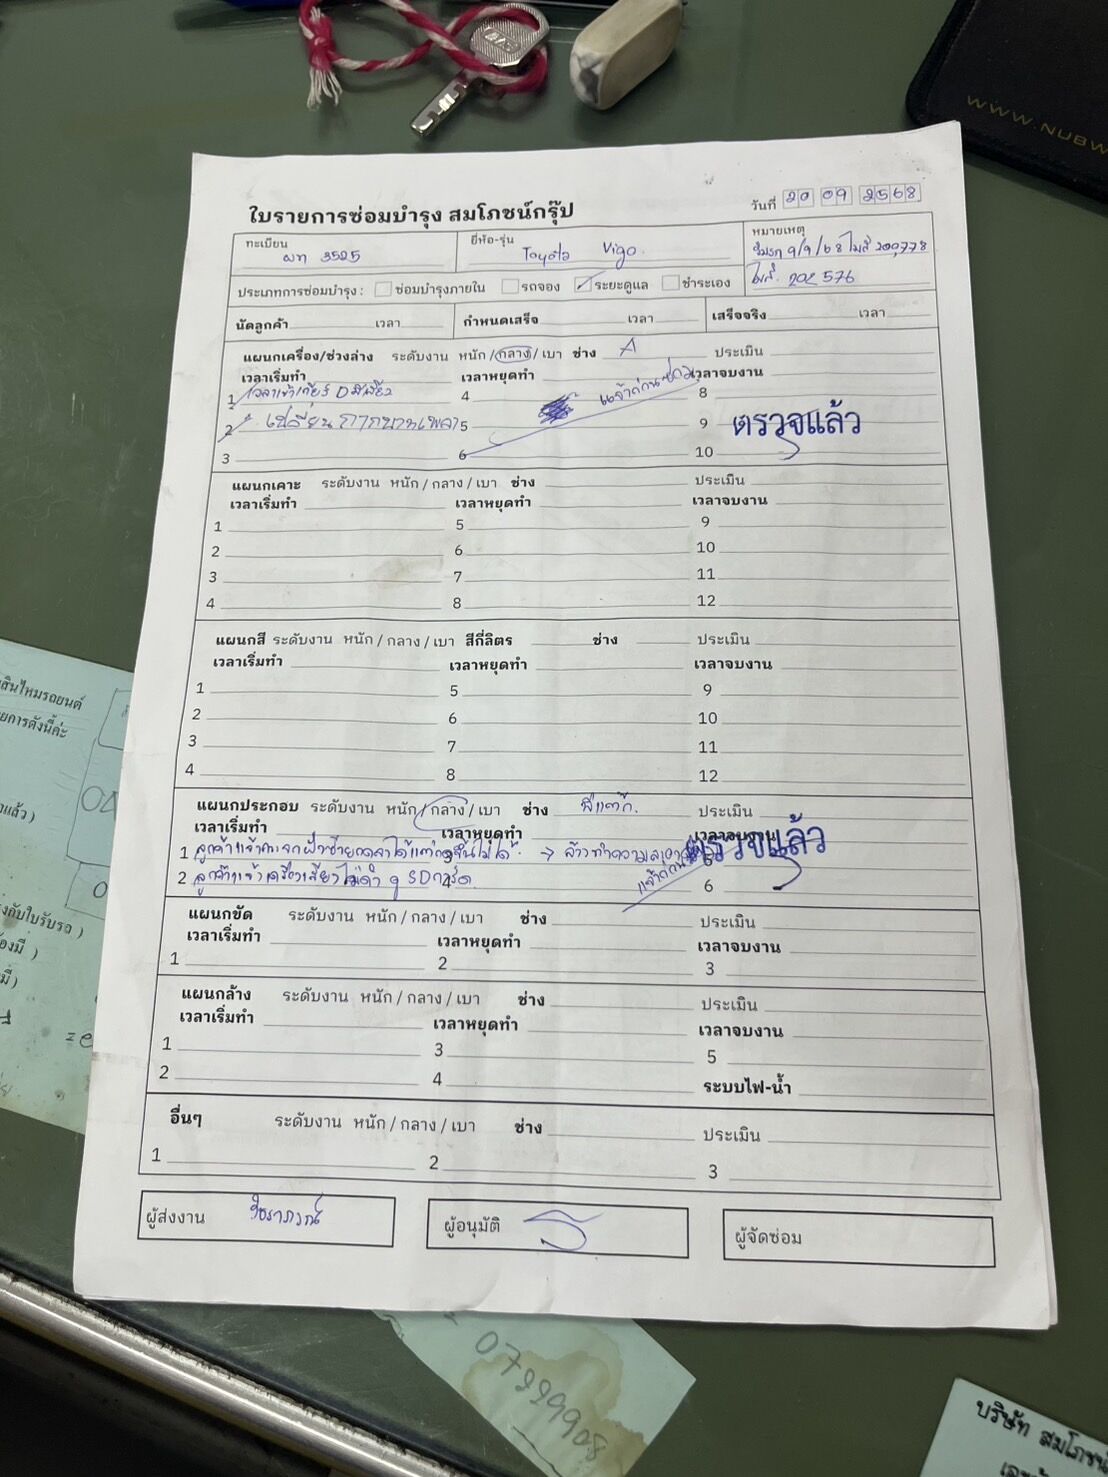 WWW.NUBW
ใบรายการซ่อมบำรุง สมโภชน์กรุ๊ป
วันที่ 20 09 2568
ทะเบียน ผท 3525
ยี่ห้อ-รุ่น Toyota Vigo.
หมายเหตุ
รับรถ 9/9/68 ไมล์ 200,778
ไมล์. 202 576
ประเภทการซ่อมบำรุง : ซ่อมบำรุงภายใน รถจอง ระยะดูแล ชำระเอง
นัดลูกค้า เวลา กำหนดเสร็จ เวลา เสร็จจริง เวลา
แผนกเครื่อง/ช่วงล่าง ระดับงาน หนัก / กลาง / เบา ช่าง A ประเมิน
เวลาเริ่มทำ เวลาหยุดทำ เวลาจบงาน
1 เวลาเข้าเกียร์ D มีเสียง 4 แจ้งก่อนซ่อม 8
2 เปลี่ยน กากบาทเพลา 5 9 ตรวจแล้ว
3 6 10
แผนกเคาะ ระดับงาน หนัก / กลาง / เบา ช่าง ประเมิน
เวลาเริ่มทำ เวลาหยุดทำ เวลาจบงาน
1 5 9
2 6 10
3 7 11
4 8 12
แผนกสี ระดับงาน หนัก / กลาง / เบา สีกี่ลิตร ช่าง ประเมิน
เวลาเริ่มทำ เวลาหยุดทำ เวลาจบงาน
1 5 9
2 6 10
3 7 11
4 8 12
แผนกประกอบ ระดับงาน หนัก / กลาง / เบา ช่าง ประเมิน
เวลาเริ่มทำ เวลาหยุดทำ เวลาจบงาน
1 ลูกค้าแจ้งกระจกฝั่งซ้ายกดลงได้แต่กดขึ้นไม่ได้ → ล้างทำความสะอาด 5 ตรวจแล้ว
2 ลูกค้าแจ้งเครื่องเสียงไม่ดัง ดู SD การ์ด 4 แจ้งก่อน 6
แผนกขัด ระดับงาน หนัก / กลาง / เบา ช่าง ประเมิน
เวลาเริ่มทำ เวลาหยุดทำ เวลาจบงาน
1 2 3
แผนกล้าง ระดับงาน หนัก / กลาง / เบา ช่าง ประเมิน
เวลาเริ่มทำ เวลาหยุดทำ เวลาจบงาน
1 3 5
2 4 ระบบไฟ-น้ำ
อื่นๆ ระดับงาน หนัก / กลาง / เบา ช่าง ประเมิน
1 2 3
ผู้ส่งงาน
ผู้อนุมัติ
ผู้จัดซ่อม
สินไหมรถยนต์
ยการดังนี้ค่ะ
งกับใบรับรถ )
บริษัท สมโภชน์